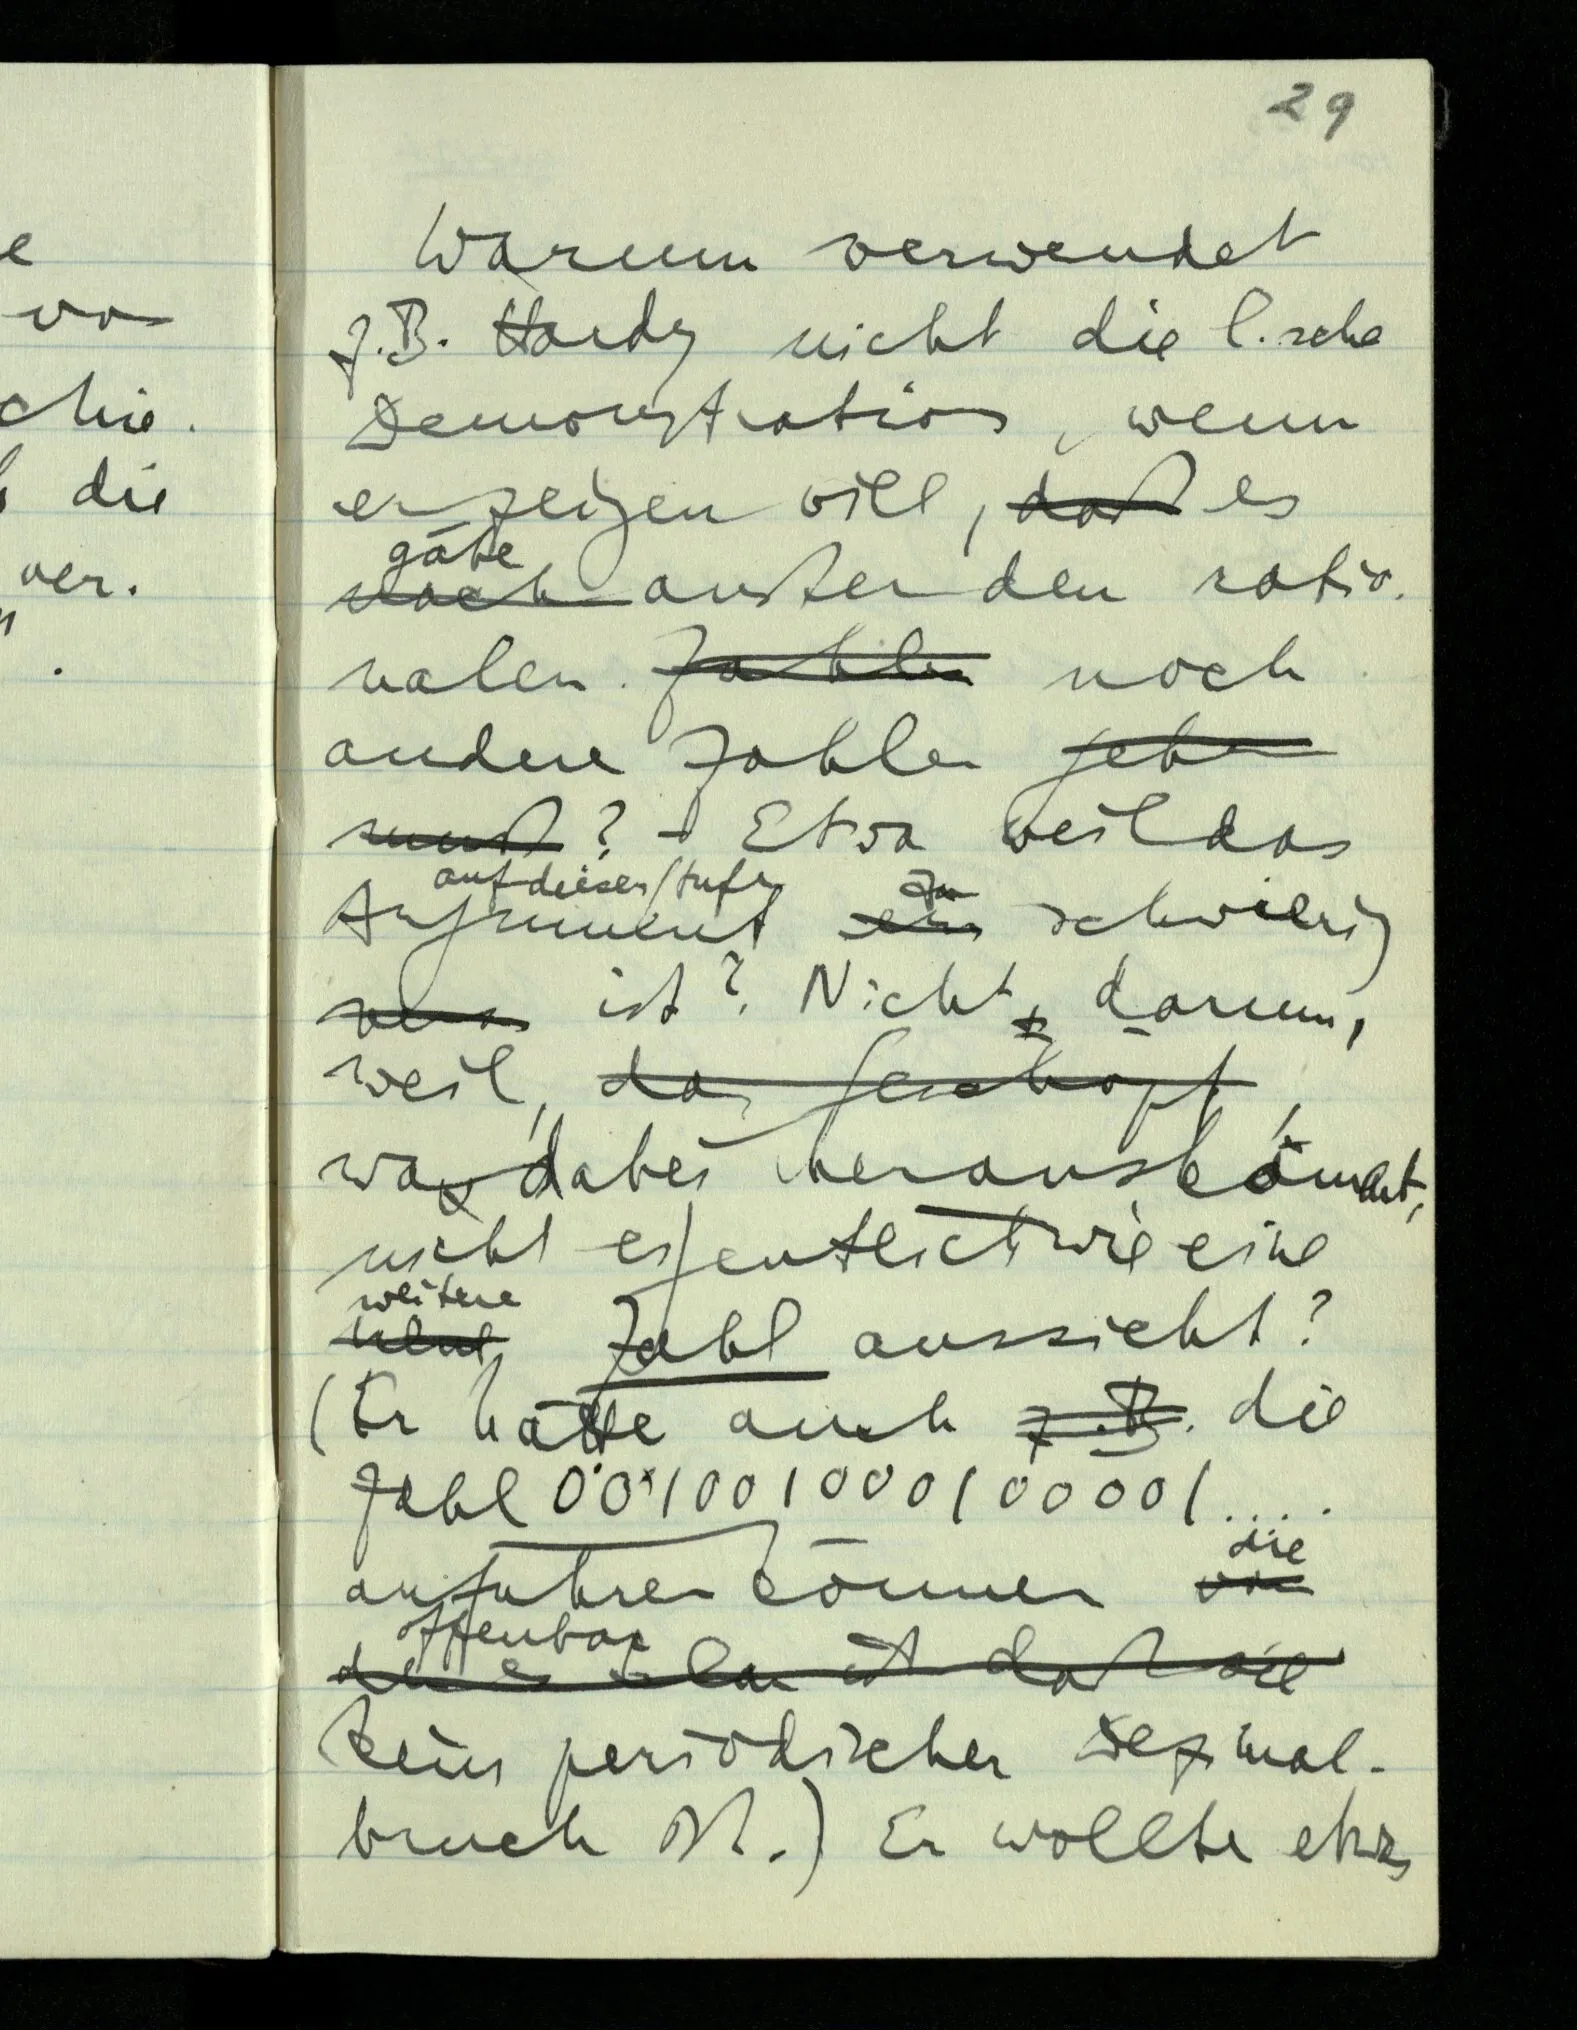 e
vo
chie.
die
ver.
29
Warum verwendet
z.B. Hardy nicht die C.sche
Demonstration, wenn
er zeigen will, daß es
gäbe
noch außer den ratio-
nalen Zahlen noch
andere Zahlen geben
muß? – Etwa weil das
auf dieser Stufe zu
Argument ein schwierig
ist? Nicht, darum,
weil, das Geschöpf,
was dabei herauskommt,
nicht eigentlich wie eine
weitere
Zahl aussieht?
(Er hätte auch z.B. die
Zahl 0·01001000100001....
die
anführen können
offenbar
daß sie
kein periodischer Dezimal-
bruch ist.) Er wollte etwas